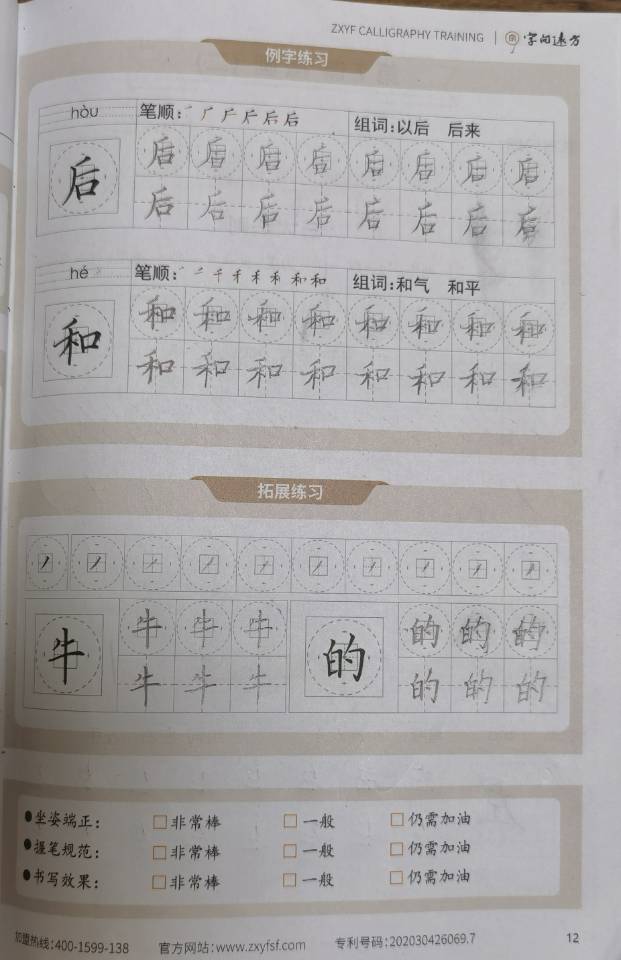 ZXYF CALLIGRAPHY TRAINING | 字的远方
例字练习
hòu 笔顺: 后 组词:以后 后来
后 后 后 后 后 后 后 后 后
后 后 后 后 后 后 后 后
hé 笔顺: 千 禾 和 组词:和气 和平
和 和 和 和 和 和 和 和 和
和 和 和 和 和 和 和 和
拓展练习
牛 牛 牛 牛 的 的 的 的
牛 牛 牛 的 的 的
●坐姿端正: □非常棒 □一般 □仍需加油
●握笔规范: □非常棒 □一般 □仍需加油
●书写效果: □非常棒 □一般 □仍需加油
加盟热线:400-1599-138 官方网站:www.zxyfsf.com 专利号码:202030426069.7 12